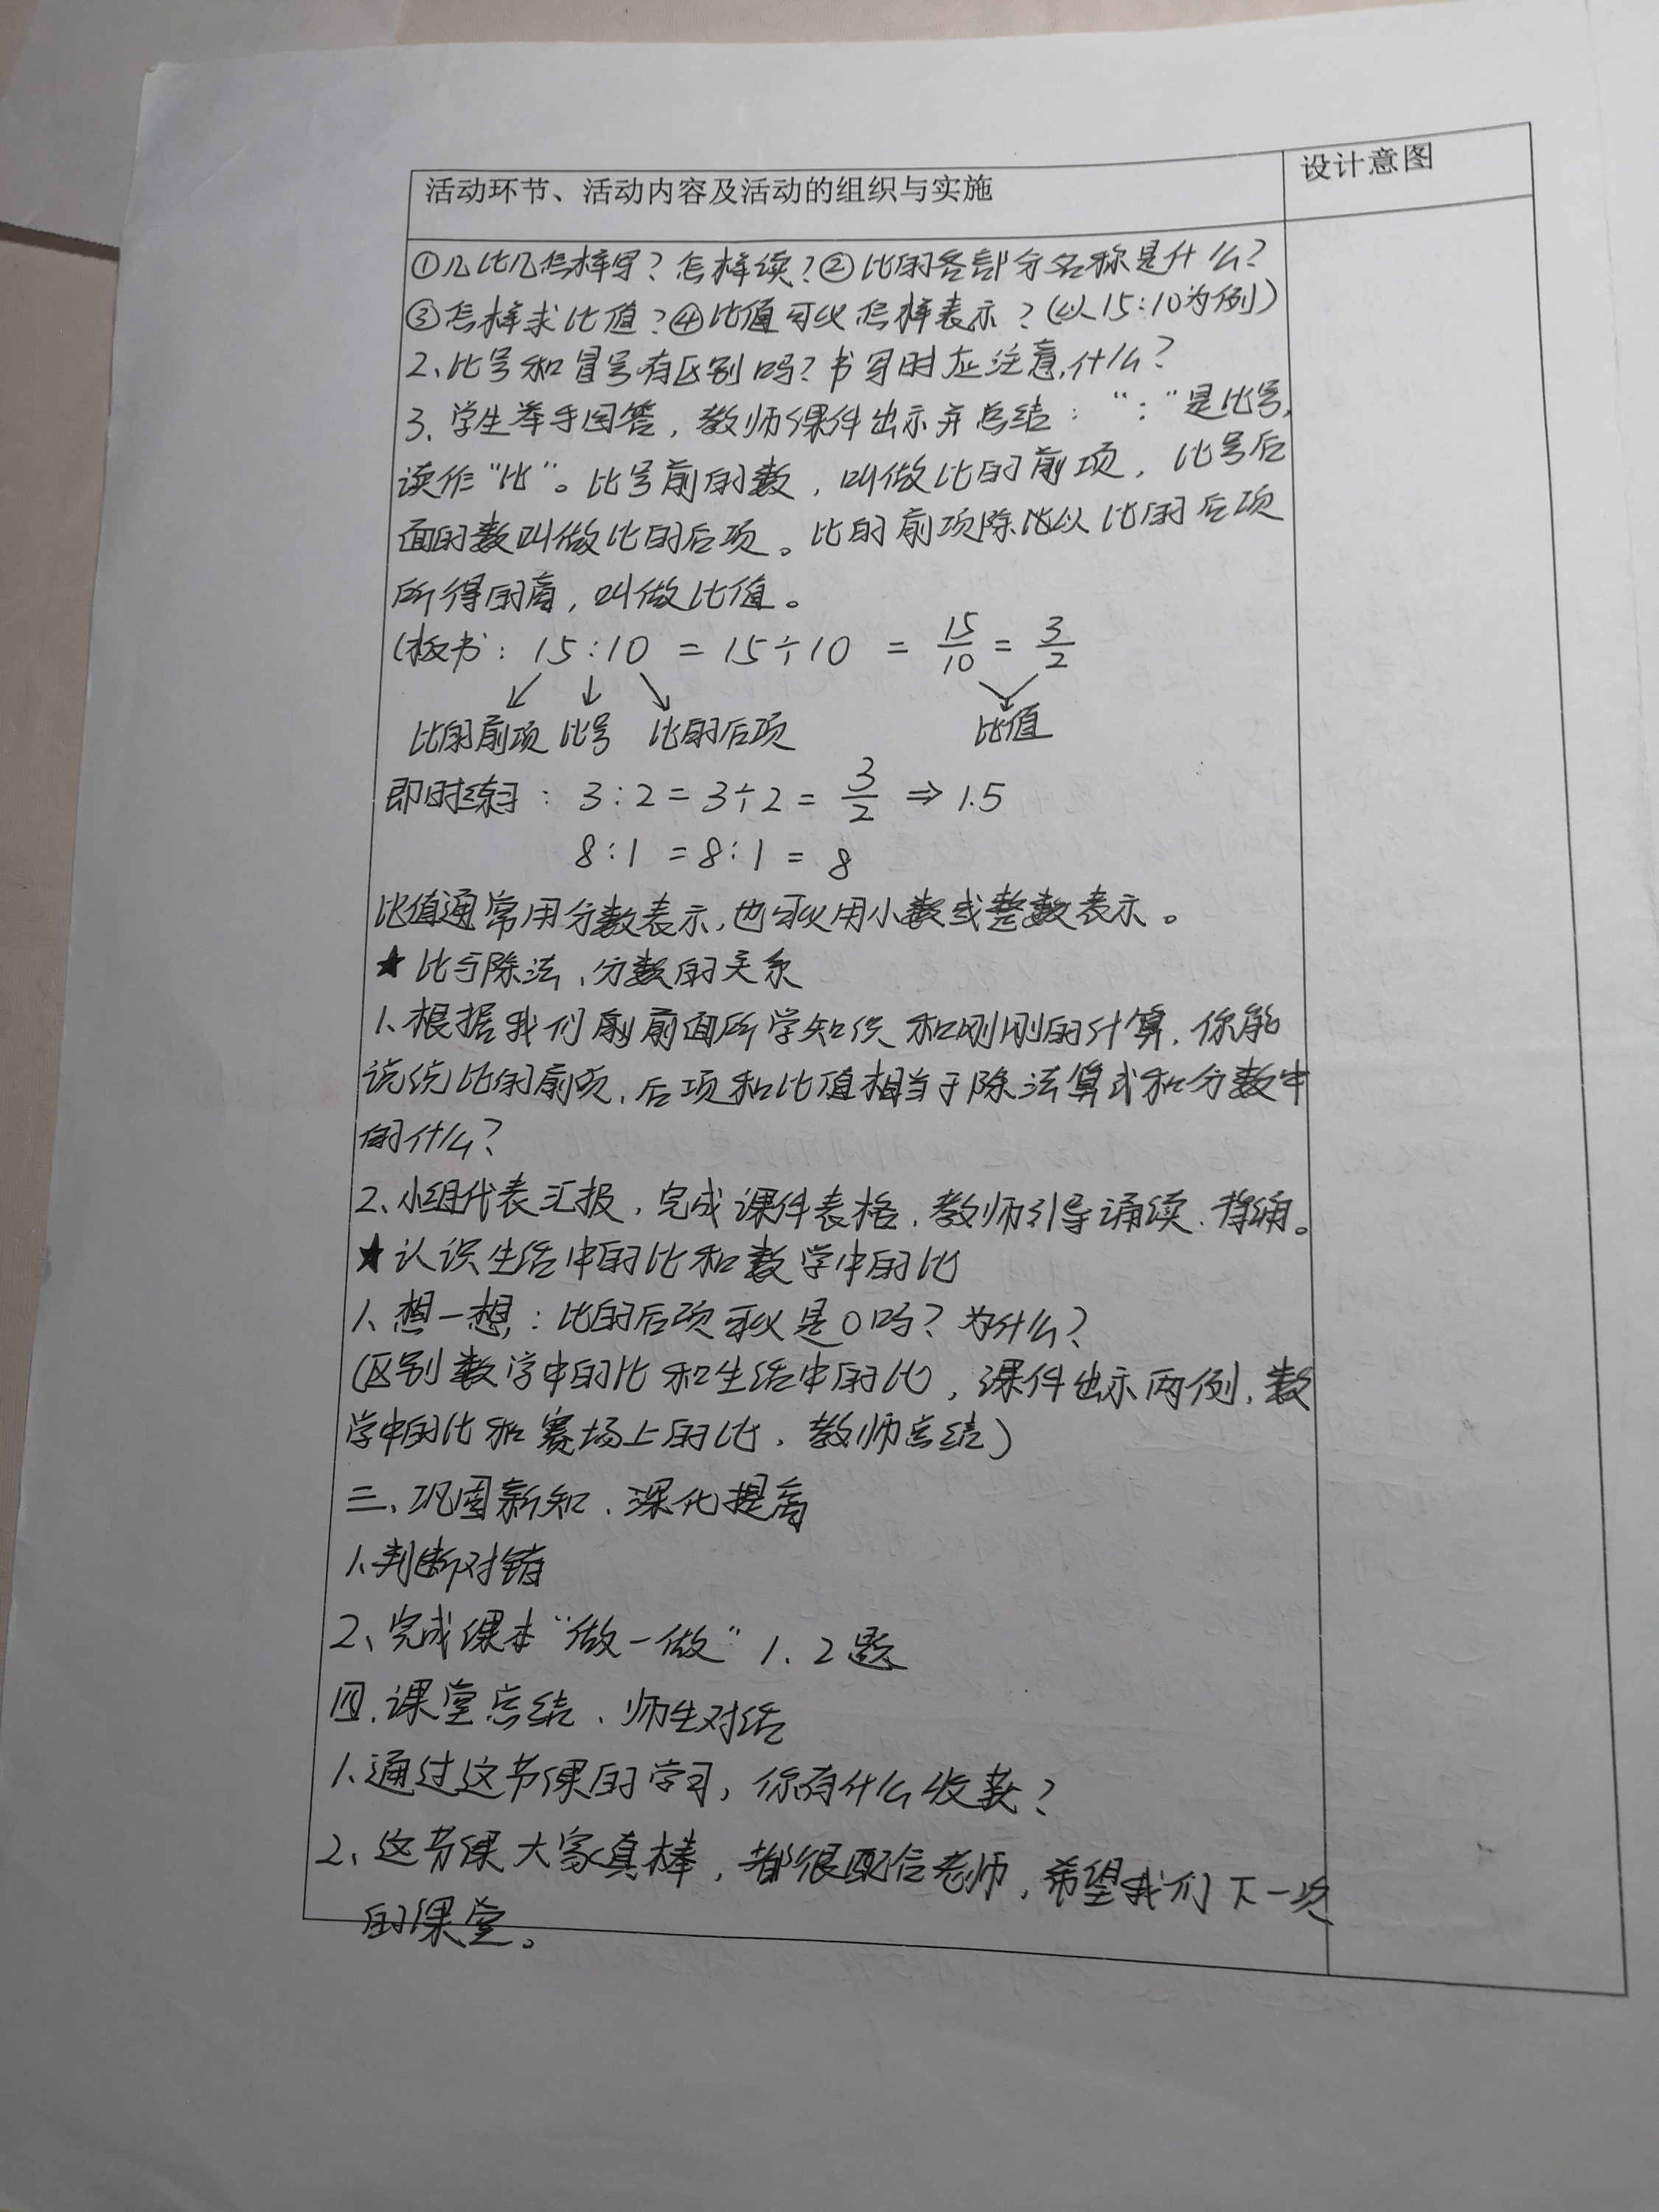 活动环节、活动内容及活动的组织与实施
设计意图
①几比几怎样写？怎样读？②比的各部分名称是什么？
③怎样求比值？④比值可以怎样表示？（以15:10为例）
2、比号和冒号有区别吗？书写时应注意什么？
3、学生举手回答，教师课件出示并总结：“：”是比号，
读作“比”。比号前的数，叫做比的前项，比号后
面的数叫做比的后项。比的前项除以比的后项
所得的商，叫做比值。
（板书：15:10 = 15÷10 = 15/10 = 3/2
比的前项 比号 比的后项 比值
即时练习：3:2 = 3÷2 = 3/2 ⇒ 1.5
8:1 = 8:1 = 8
比值通常用分数表示，也可以用小数或整数表示。
★比与除法、分数的关系
1、根据我们前面所学知识和刚刚的计算，你能
说说比的前项、后项和比值相当于除法算式和分数中
的什么？
2、小组代表汇报，完成课件表格，教师引导诵读、背诵。
★认识生活中的比和数学中的比
1、想一想：比的后项可以是0吗？为什么？
（区别数学中的比和生活中的比，课件出示两例，数
学中的比和赛场上的比，教师总结）
三、巩固新知、深化提高
1、判断对错
2、完成课本“做一做”1、2题
四、课堂总结、师生对话
1、通过这节课的学习，你有什么收获？
2、这节课大家真棒，都很配合老师，希望我们下一次
的课堂。